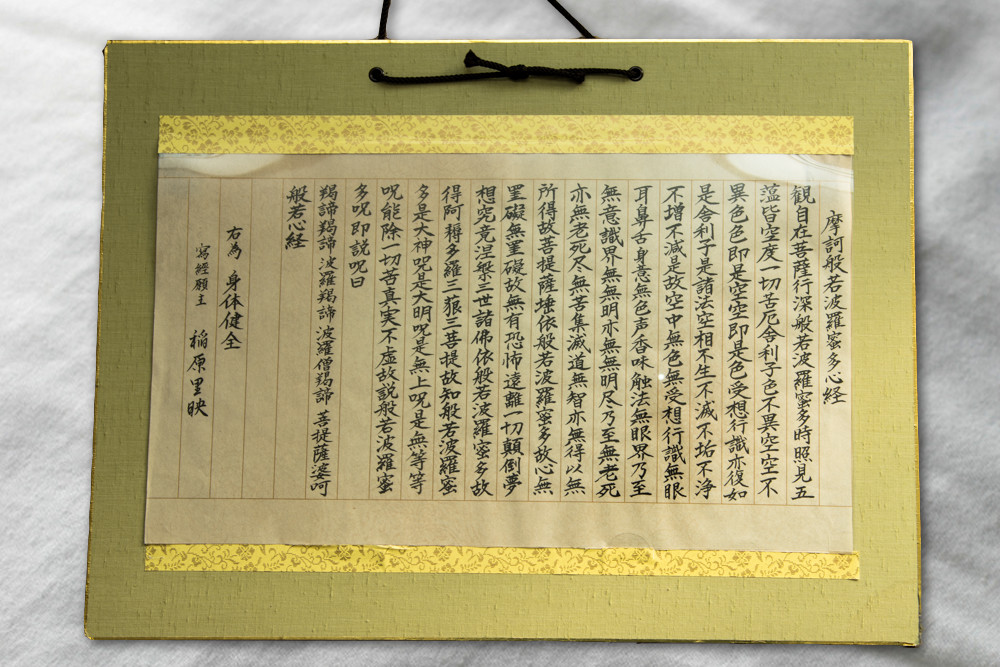 摩訶般若波羅蜜多心経
観自在菩薩行深般若波羅蜜多時照見五
蘊皆空度一切苦厄舎利子色不異空空不
異色色即是空空即是色受想行識亦復如
是舎利子是諸法空相不生不滅不垢不浄
不増不減是故空中無色無受想行識無眼
耳鼻舌身意無色声香味触法無眼界乃至
無意識界無無明亦無無明尽乃至無老死
亦無老死尽無苦集滅道無智亦無得以無
所得故菩提薩埵依般若波羅蜜多故心無
罣礙無罣礙故無有恐怖遠離一切顛倒夢
想究竟涅槃三世諸佛依般若波羅蜜多故
得阿耨多羅三藐三菩提故知般若波羅蜜
多是大神呪是大明呪是無上呪是無等等
呪能除一切苦真実不虚故説般若波羅蜜
多呪即説呪曰
羯諦羯諦 波羅羯諦 波羅僧羯諦 菩提薩婆訶
般若心経
右為 身体健全
寫經願主 稲原里映